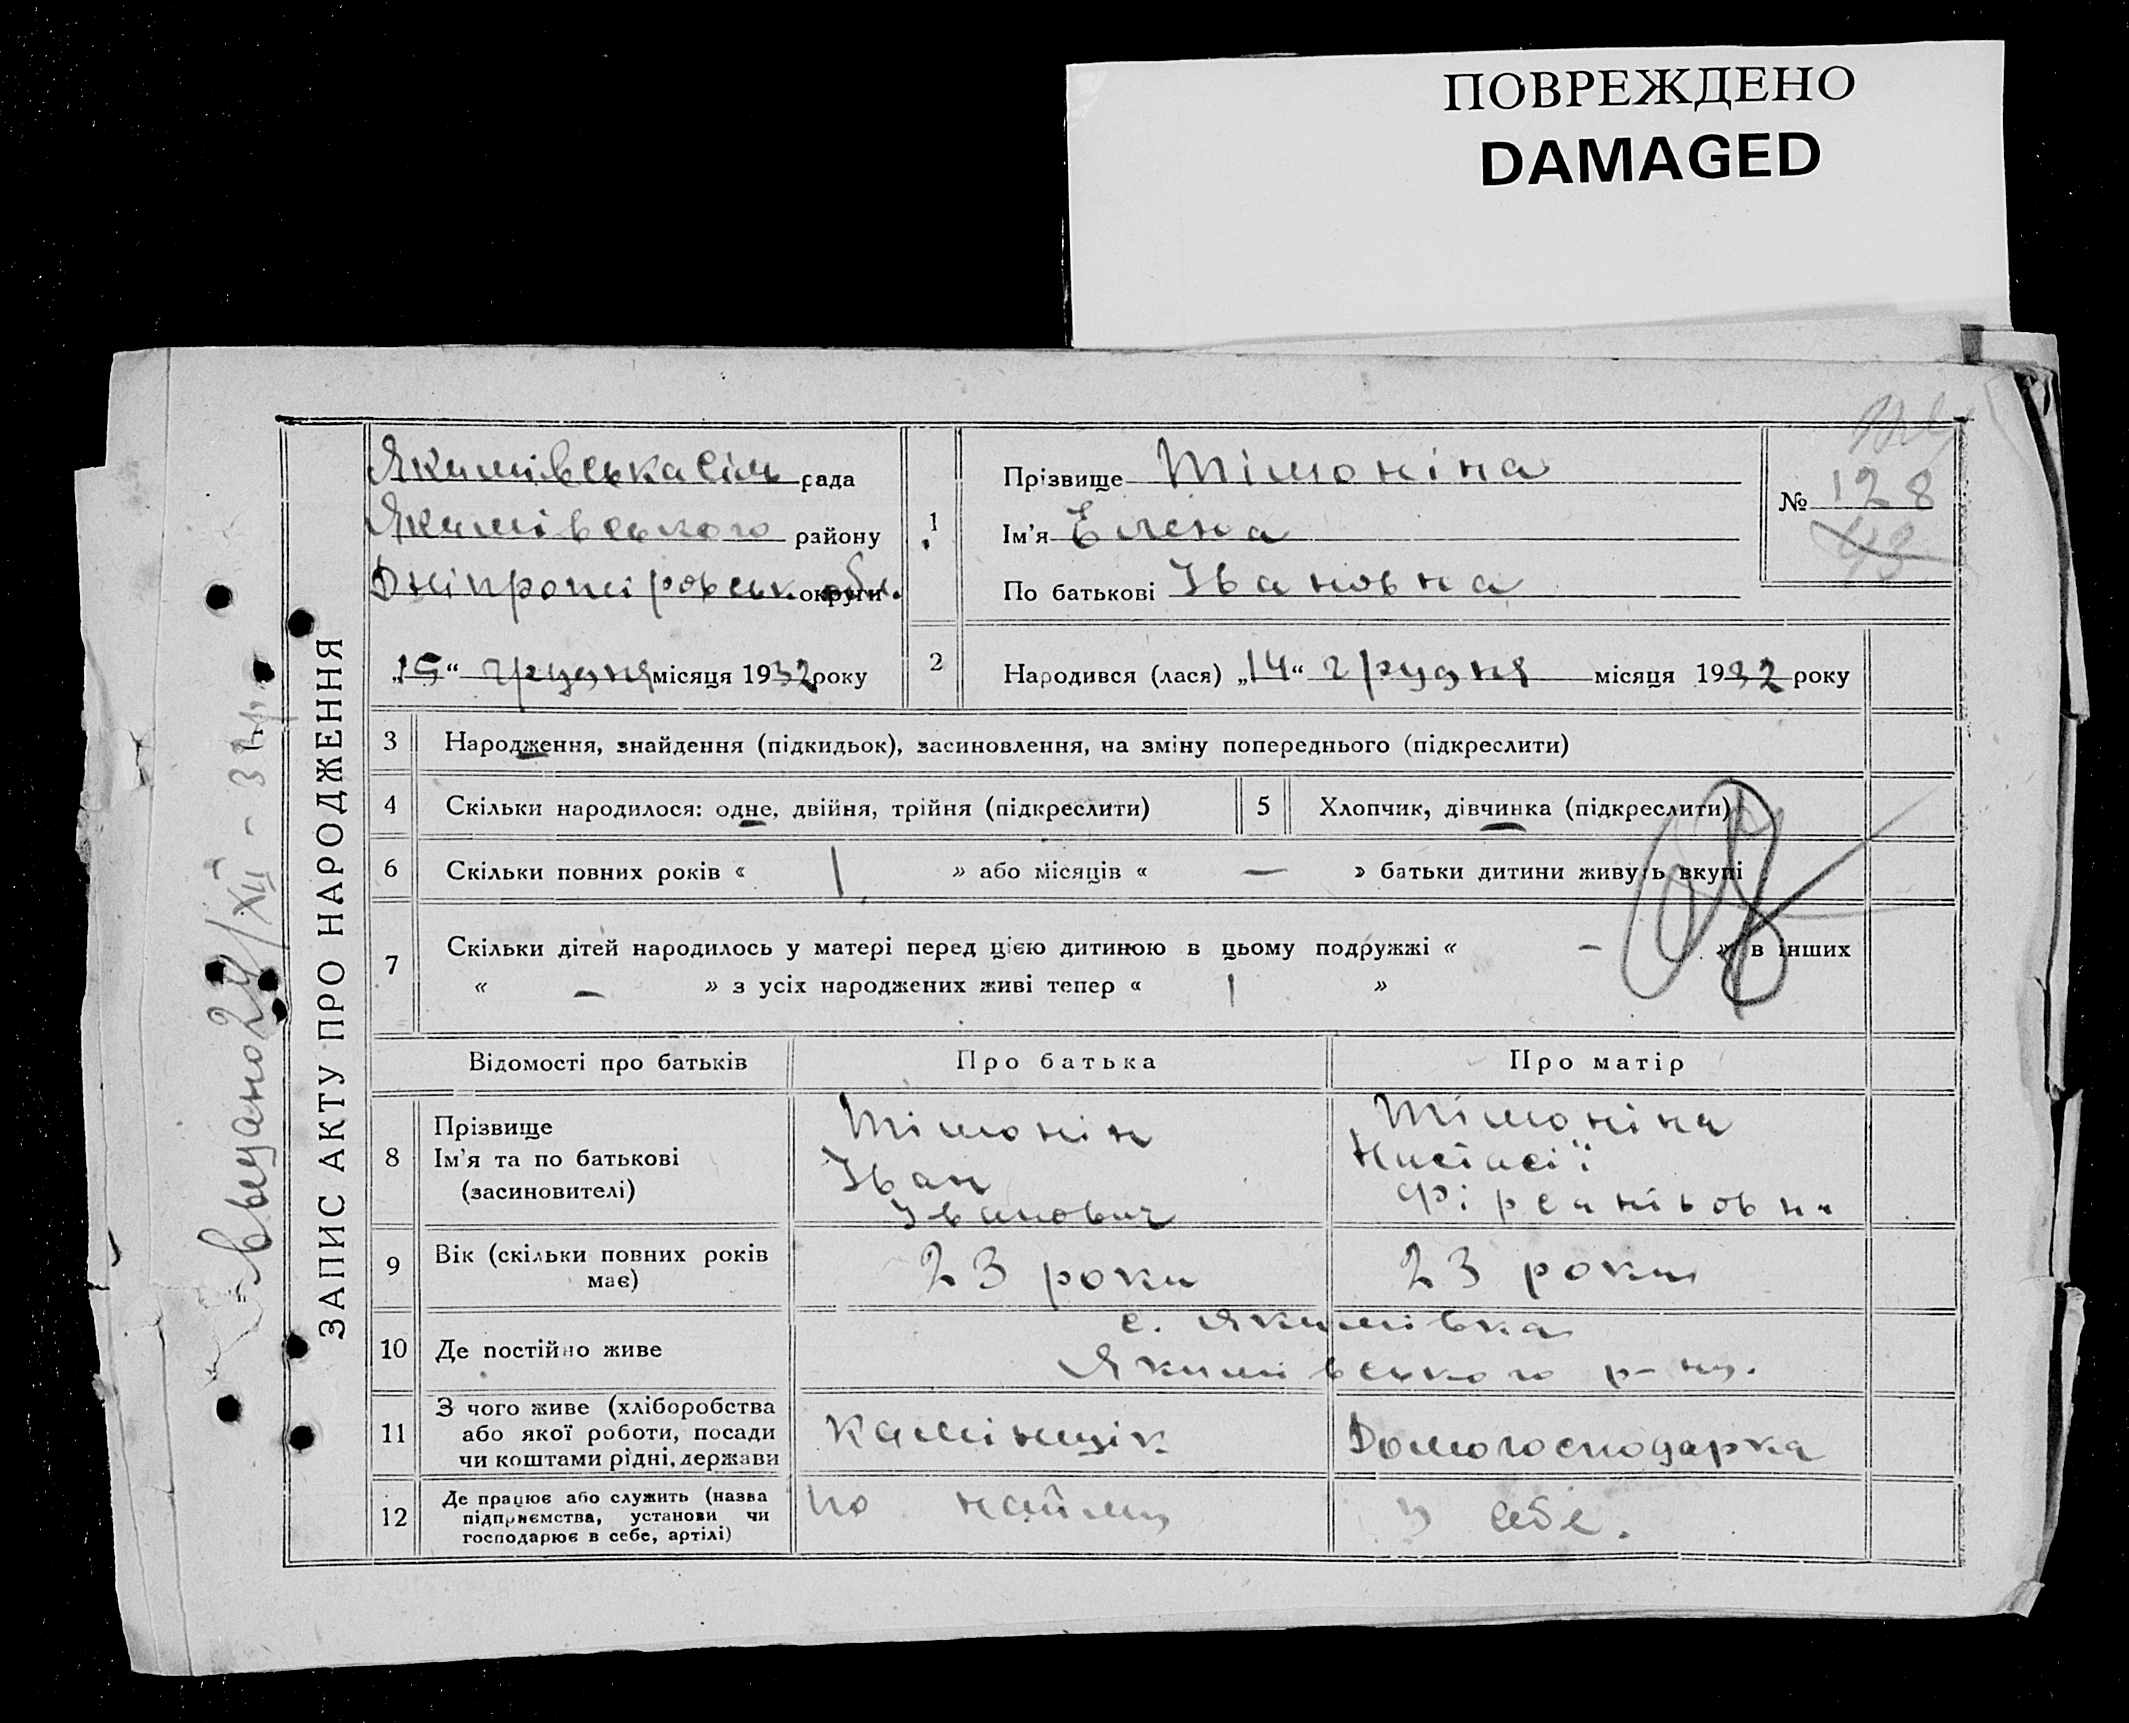 ПОВРЕЖДЕНО
DAMAGED
ЗАПИС АКТУ ПРО НАРОДЖЕННЯ
Выдано 24/XII - 32 р.
Якимівська сіль рада
Якимівського району
Дніпропетровськ. округи обл.
„15“ грудня місяця 1932 року
1
Прізвище Тімоніна
Ім'я Елена
По батькові Івановна
№ 128
43
2
Народився (лася) „14“ грудня місяця 1932 року
3 Народження, знайдення (підкидьок), засиновлення, на зміну попереднього (підкреслити)
4 Скільки народилося: одне, двійня, трійня (підкреслити)
5 Хлопчик, дівчинка (підкреслити)
6 Скільки повних років « 1 » або місяців « — » батьки дитини живуть вкупі
7 Скільки дітей народилось у матері перед цією дитиною в цьому подружжі « — » в інших
« — » з усіх народжених живі тепер « 1 »
Відомості про батьків Про батька Про матір
8 Прізвище
Ім'я та по батькові
(засиновителі)
Тімонін
Іван
Іванович
Тімоніна
Настасії
9 Вік (скільки повних років
має)
23 роки
23 роки
10 Де постійно живе
с. Якимівка
Якимівського р-ну.
11 З чого живе (хліборобства
або якої роботи, посади
чи коштами рідні, держави
Камінщік
Домогосподарка
12 Де працює або служить (назва
підприємства, установи чи
господарює в себе, артілі)
по найму
у себе.